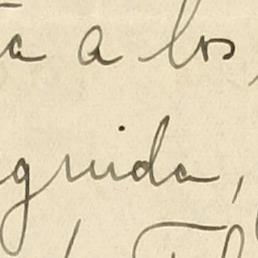 a a los
guida,